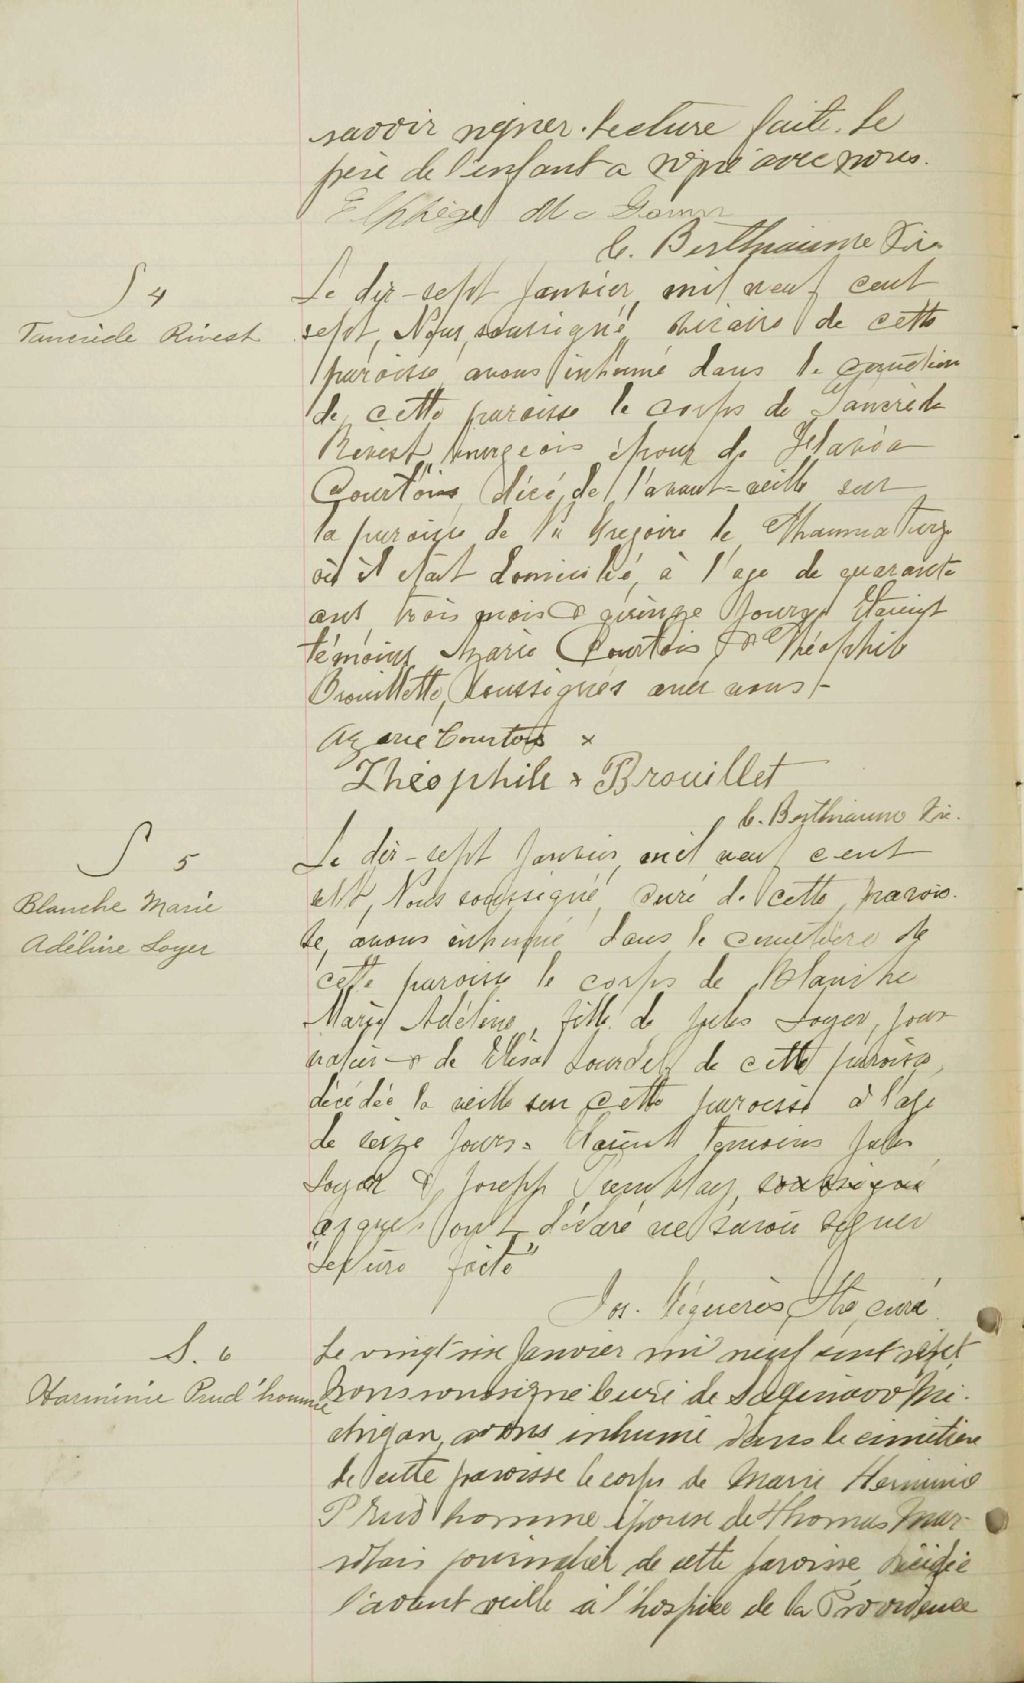 savoir signer. Lecture faite. Le
père de l'enfant a signé avec nous.
Elphège
C. Berthiaume Vic.
S 4
Tancrède Rivest
Le dix-sept janvier mil neuf cent
sept, Nous soussigné, vicaire de cette
paroisse avons inhumé dans le cimetière
de cette paroisse le corps de Tancrède
Rivest, bourgeois époux de
Courtois décédé l'avant-veille sur
la paroisse de St Gregoire le Thaumaturge
où il était domicilié, à l'age de quarante
ans trois mois & quinze jours. Etaient
témoins Courtois & Théophile
Brouillette, soussignés avec nous -
Azarie Courtois x
Théophile x Brouillet
C. Berthiaume Vic.
S 5
Blanche Marie
Adéline Loyer
Le dix-sept janvier, mil neuf cent
sept, Nous soussigné, curé de cette parois-
se, avons inhumé dans le cimetière de
cette paroisse le corps de Blanche
Marie Adéline, fille de Jules Loyer, jour-
nalier & de Elisa Lourdel de cette paroisse,
décédée la veille sur cette paroisse à l'age
de seize jours. Etaient temoins Jules
Loyer & Joseph Tremblay, soussigné
lesquels ont déclaré ne savoir signer
"Lecture faite"
Jos. Ptre, curé
S. 6
Harminie Prud'homme
Le vingt six janvier mil neuf cent sept
nous soussigné Curé de Saginaw Mi-
chigan, avons inhumé dans le cimetière
de cette paroisse le corps de Marie Herminie
Prud'homme épouse de Thomas Mar-
solais journalier de cette paroisse, décédée
l'avant veille à l'hospice de la Providence